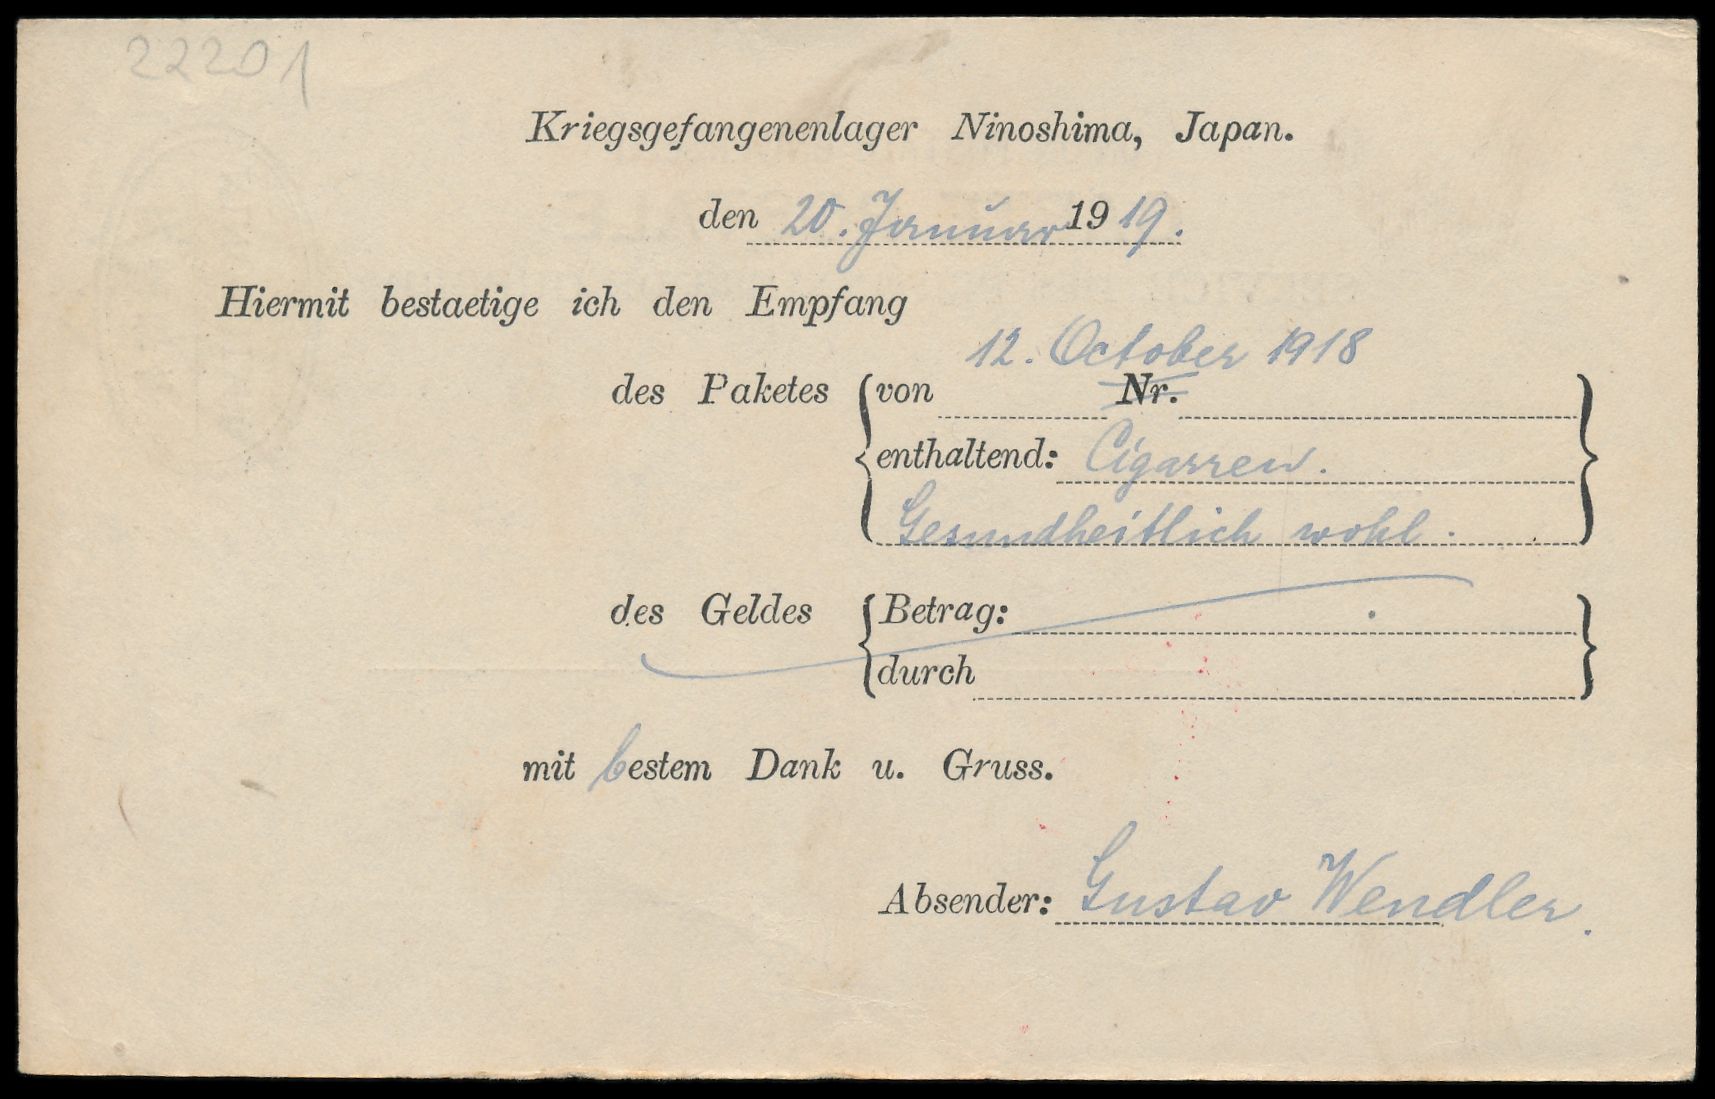 22201
Kriegsgefangenenlager Ninoshima, Japan.
den 20. Januar 1919.
Hiermit bestaetige ich den Empfang
12. October 1918
des Paketes { von Nr. }
enthaltend: Cigarren.
Gesundheitlich wohl.
des Geldes { Betrag: }
durch
mit bestem Dank u. Gruss.
Absender: Gustav Wendler.